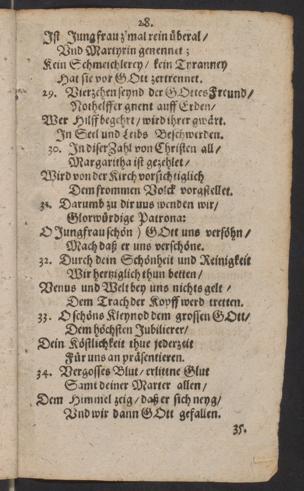 28.
Ist Jungfrau z'mal rein überal /
Vnd Martyrin genennet;
Kein Schmeichlerey / kein Tyranney
Hat sie vor GOtt zertrennet.
29. Vierzehen seynd der GOttes Freund /
Nothelffer gnent auff Erden /
Wer Hilff begehrt / wird ihrer gwärt.
In Seel und Leibs Beschwerden.
30. In diser Zahl von Christen all /
Margaritha ist gezehlet /
Wird von der Kirch vorsichtiglich
Dem frommen Volck vorgstellet.
31. Darumb zu dir uns wenden wir /
Glorwürdige Patrona:
O Jungfrau schön ) GOtt uns versöhn /
Mach daß er uns verschöne.
32. Durch dein Schönheit und Reinigkeit
Wir hertziglich thun betten /
Venus und Welt bey uns nichts gelt /
Dem Trach der Kopff werd tretten.
33. O schöns Kleynod dem grossen GOtt /
Dem höchsten Jubilierer /
Dein Köstlichkeit thue jederzeit
Für uns an präsentieren.
34. Vergosses Blut / erlittne Glut
Samt deiner Marter allen /
Dem Himmel zeig / daß er sich neyg /
Vnd wir dann GOtt gefallen.
35.